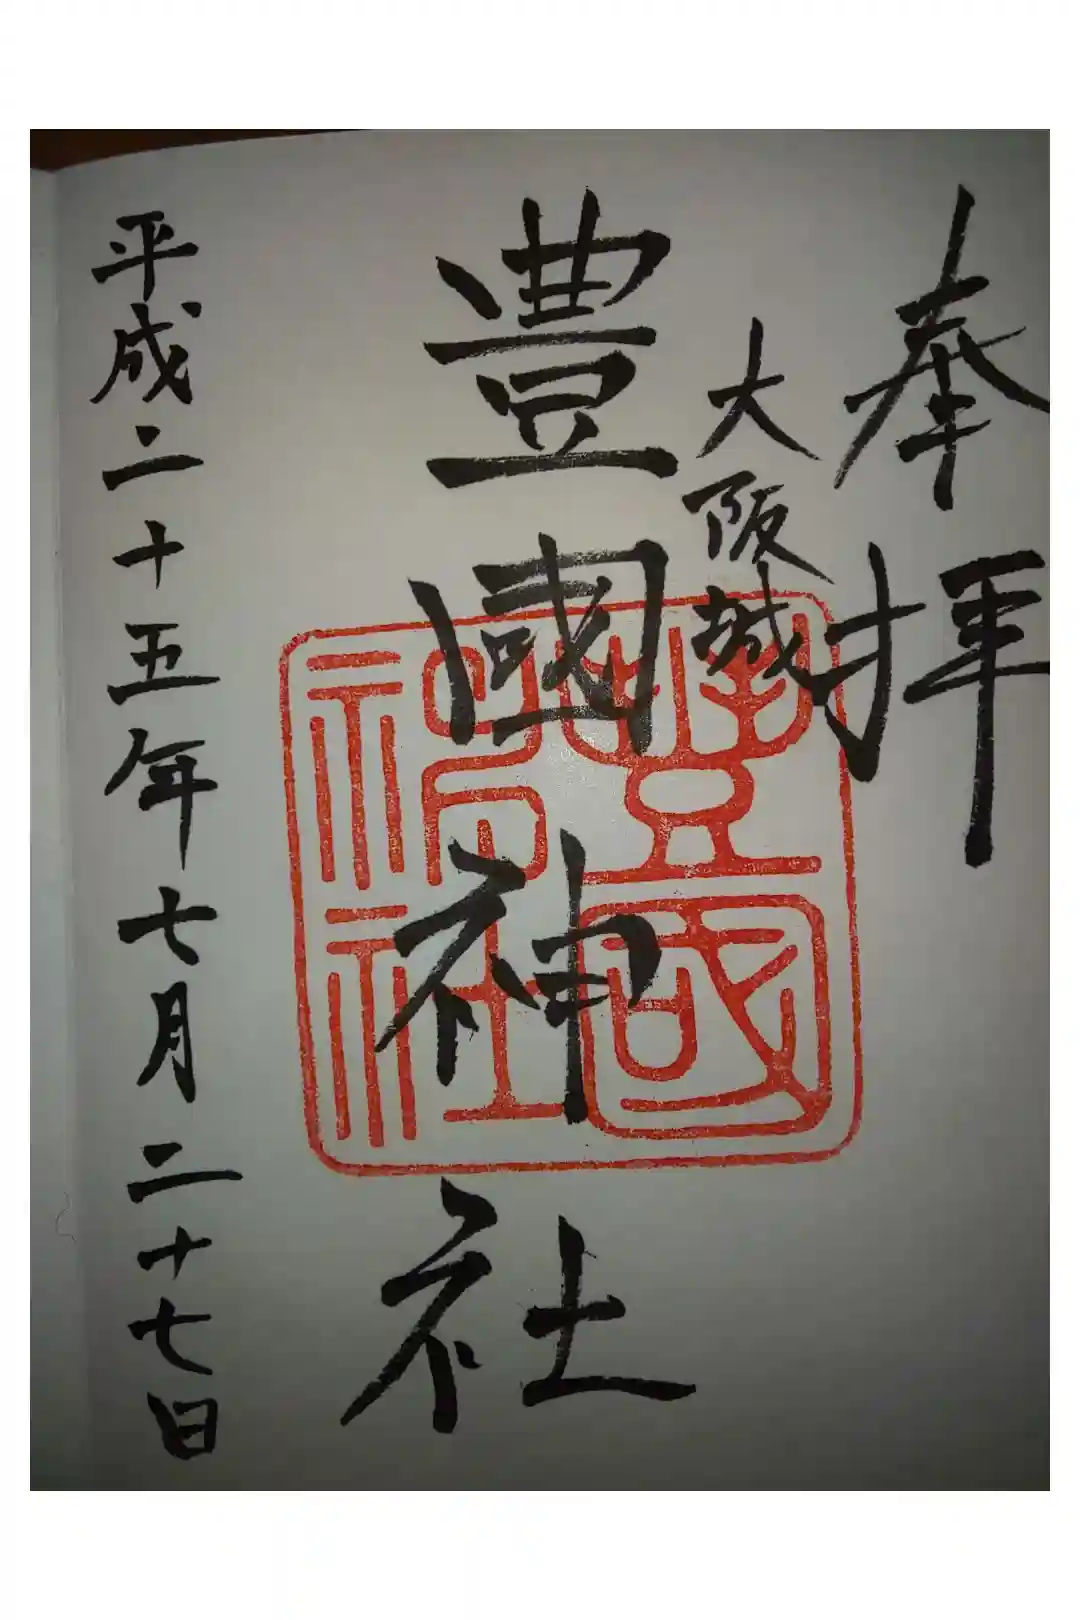 奉拝
大阪城
豊國神社
豊國神社
平成二十五年七月二十七日